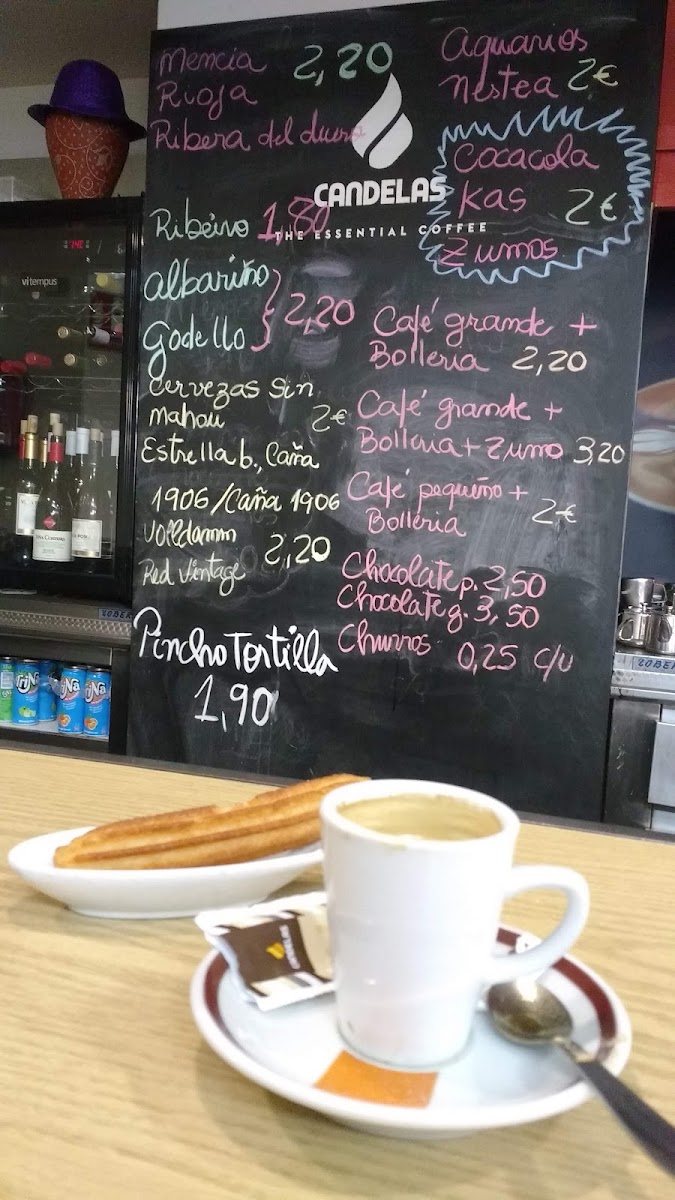 Mencia 2,20
Rioja
Ribera del duero
CANDELAS
THE ESSENTIAL COFFEE
Ribeiro 1,80
albariño
godello 2,20
Cervezas sin
Mahou 2€
Estrella b., Caña
1906/Caña 1906
Volldamm
Red Vintage 2,20
Pincho Tortilla
1,90
Aquarios
Nestea 2€
Cocacola
Kas 2€
Zumos
Café grande +
Bolleria 2,20
Café grande +
Bolleria + Zumo 3,20
Café pequeño +
Bolleria 2€
Chocolate p. 2,50
Chocolate g. 3,50
Churros 0,25 c/u
vitempus
TriNa
TriNa
CANDELAS